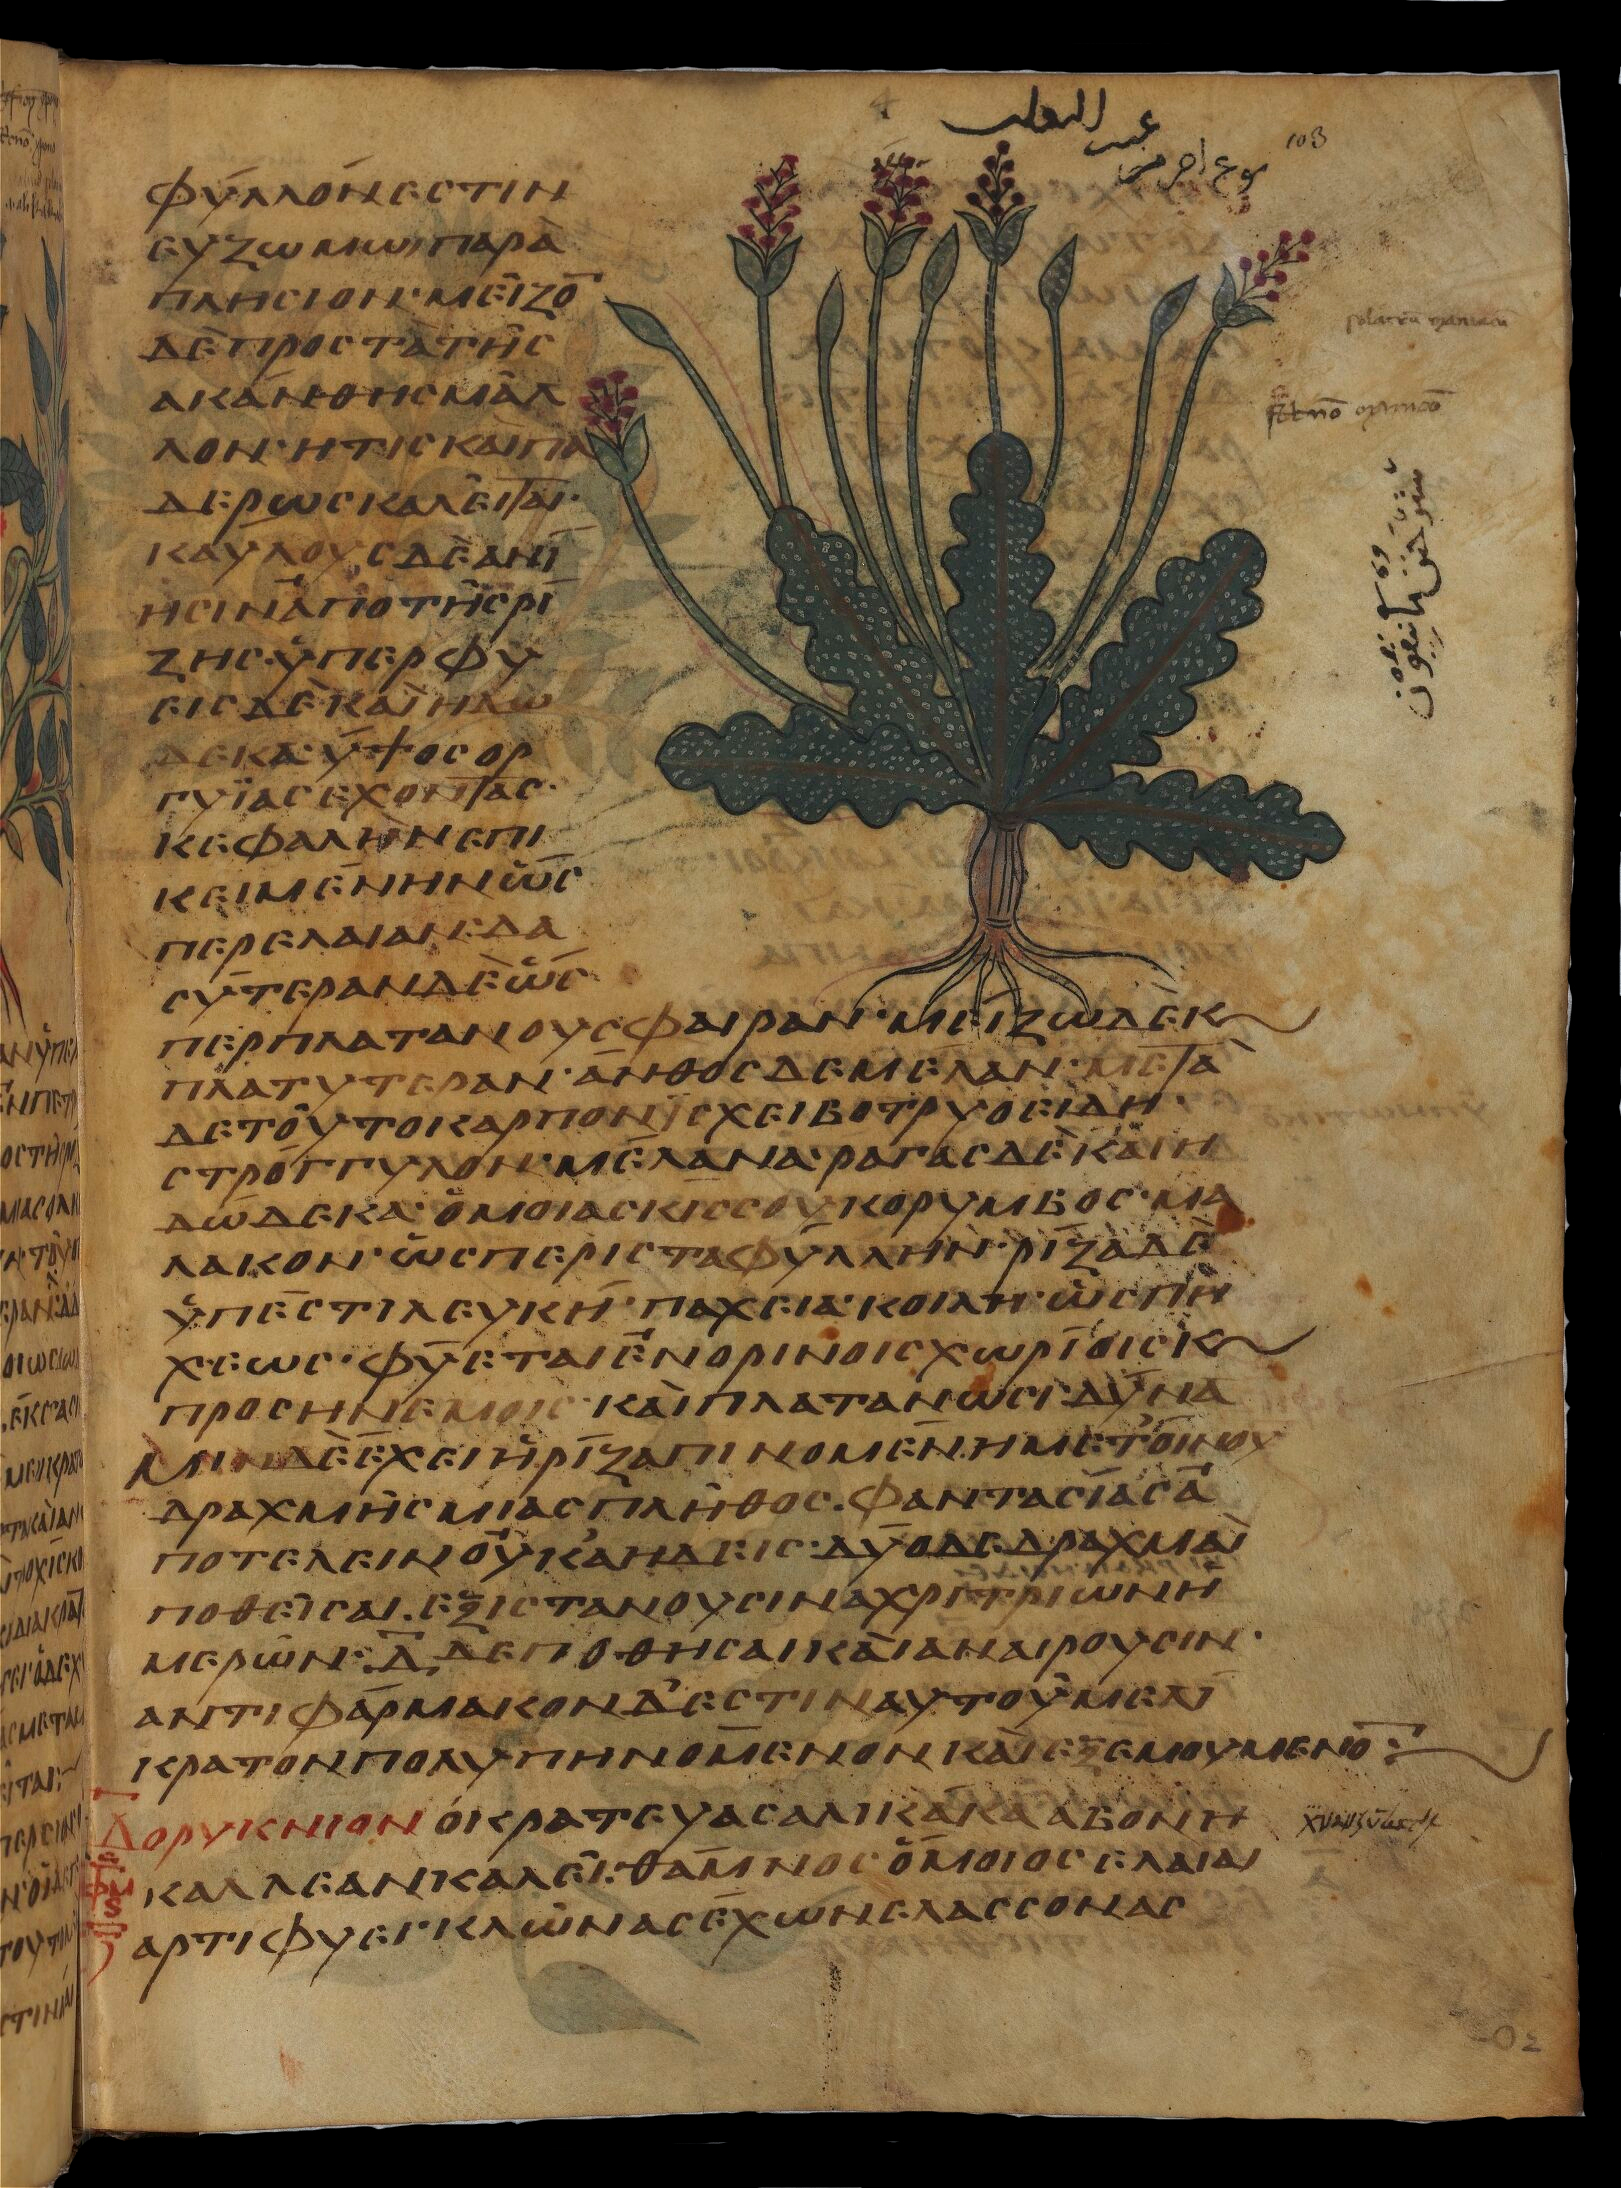 φύλλόν εστιν
ευζωμωι παρὰ
πλησιον· μεῖζο̅
δὲ προς τὰ τῆς
ακάνθης μᾶλ
λον· ητις και πα
δερως καλεῖται·
καυλους δὲ ανί
ησιν ἀπο τῆς ρί
ζης· ὑπερφυ
εις δὲκα ἢ δω
δεκα· ύψος ορ
γυϊὰς εχοντας·
κεφαλὴν επι
κειμένην ὥς
περ ελαίαν· δα
συτεραν δὲ ὥς
περ πλατανου σφαιραν· μείζω δὲ κ
πλατυτεραν· ἄνθος δε μελαν· μετὰ
δε τοῦτο καρπον ϊσχει βοτρυοειδη·
στρογγυλον· μέλανα· ραγας δὲ κα ἢ
δώδεκα· ὁμοιας κισσου κορυμβος· μα
λακον· ὥσπερι σταφύλλην· ρίζα δὲ
ὕπεστι λευκή· παχεια· κοιλη· ὡς πή
χεως· φύεται ἐν ορινοις χωρίοις κ
προσηνεμοις· και πλατανωσι· δύνα
μιν δὲ ἔχει ἡ ρίζα πινομένη μετ' οινου
δραχμῆς μιας πλῆθος· φαντασίας ἀ
ποτελειν οὐκ' αηδεις· δύο δε δραχμαὶ
ποθεῖσαι· εξιστανουσιν αχρι τριων ἡ
μερῶν· δ̅ δε ποθησαι και αναιρουσιν·
αντιφάρμακον δ' εστιν αυτοῦ μελί
κρατον πολυ πηνόμενον και εξεμουμενο̅:
Δορυκνιον ὁ κρατευας αλικάκαλβον ἢ
καλλεαν καλεῖ· θάμνος ὅμοιος ελαίαι
αρτιφυει· κλῶνας έχων ελασσονας
عنب الثعلب
103